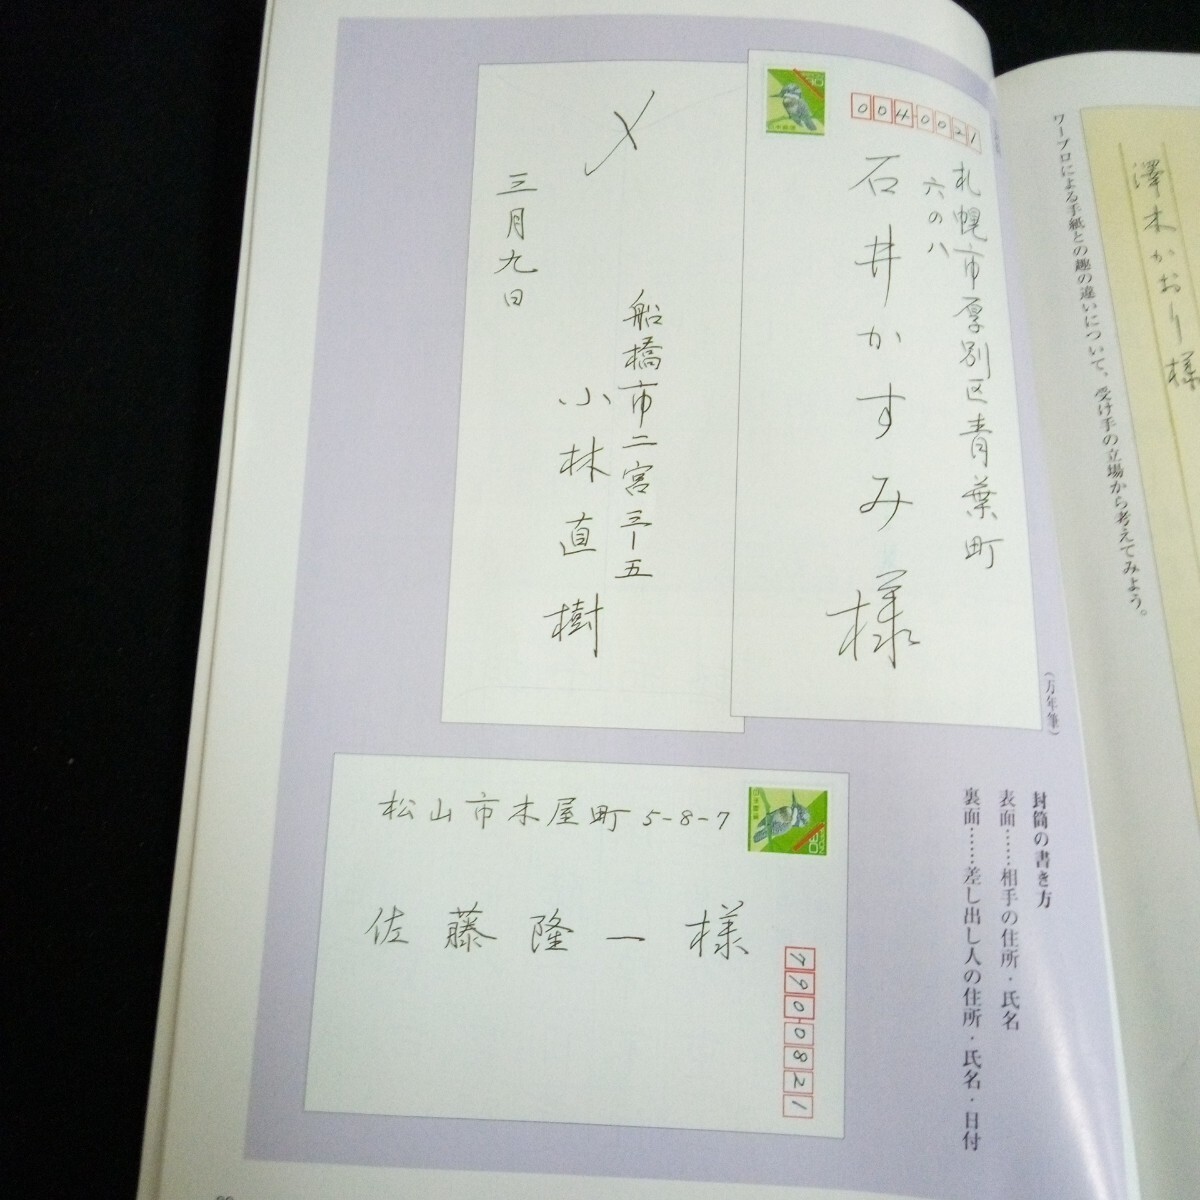 澤木かおり様
ワープロによる手紙との趣の違いについて、受け手の立場から考えてみよう。
(万年筆)
004-0021
札幌市厚別区青葉町
六の八
石井かすみ様
〆
船橋市二宮三-五
小林直樹
三月九日
封筒の書き方
表面……相手の住所・氏名
裏面……差し出し人の住所・氏名・日付
松山市木屋町5-8-7
佐藤隆一様
790-0821